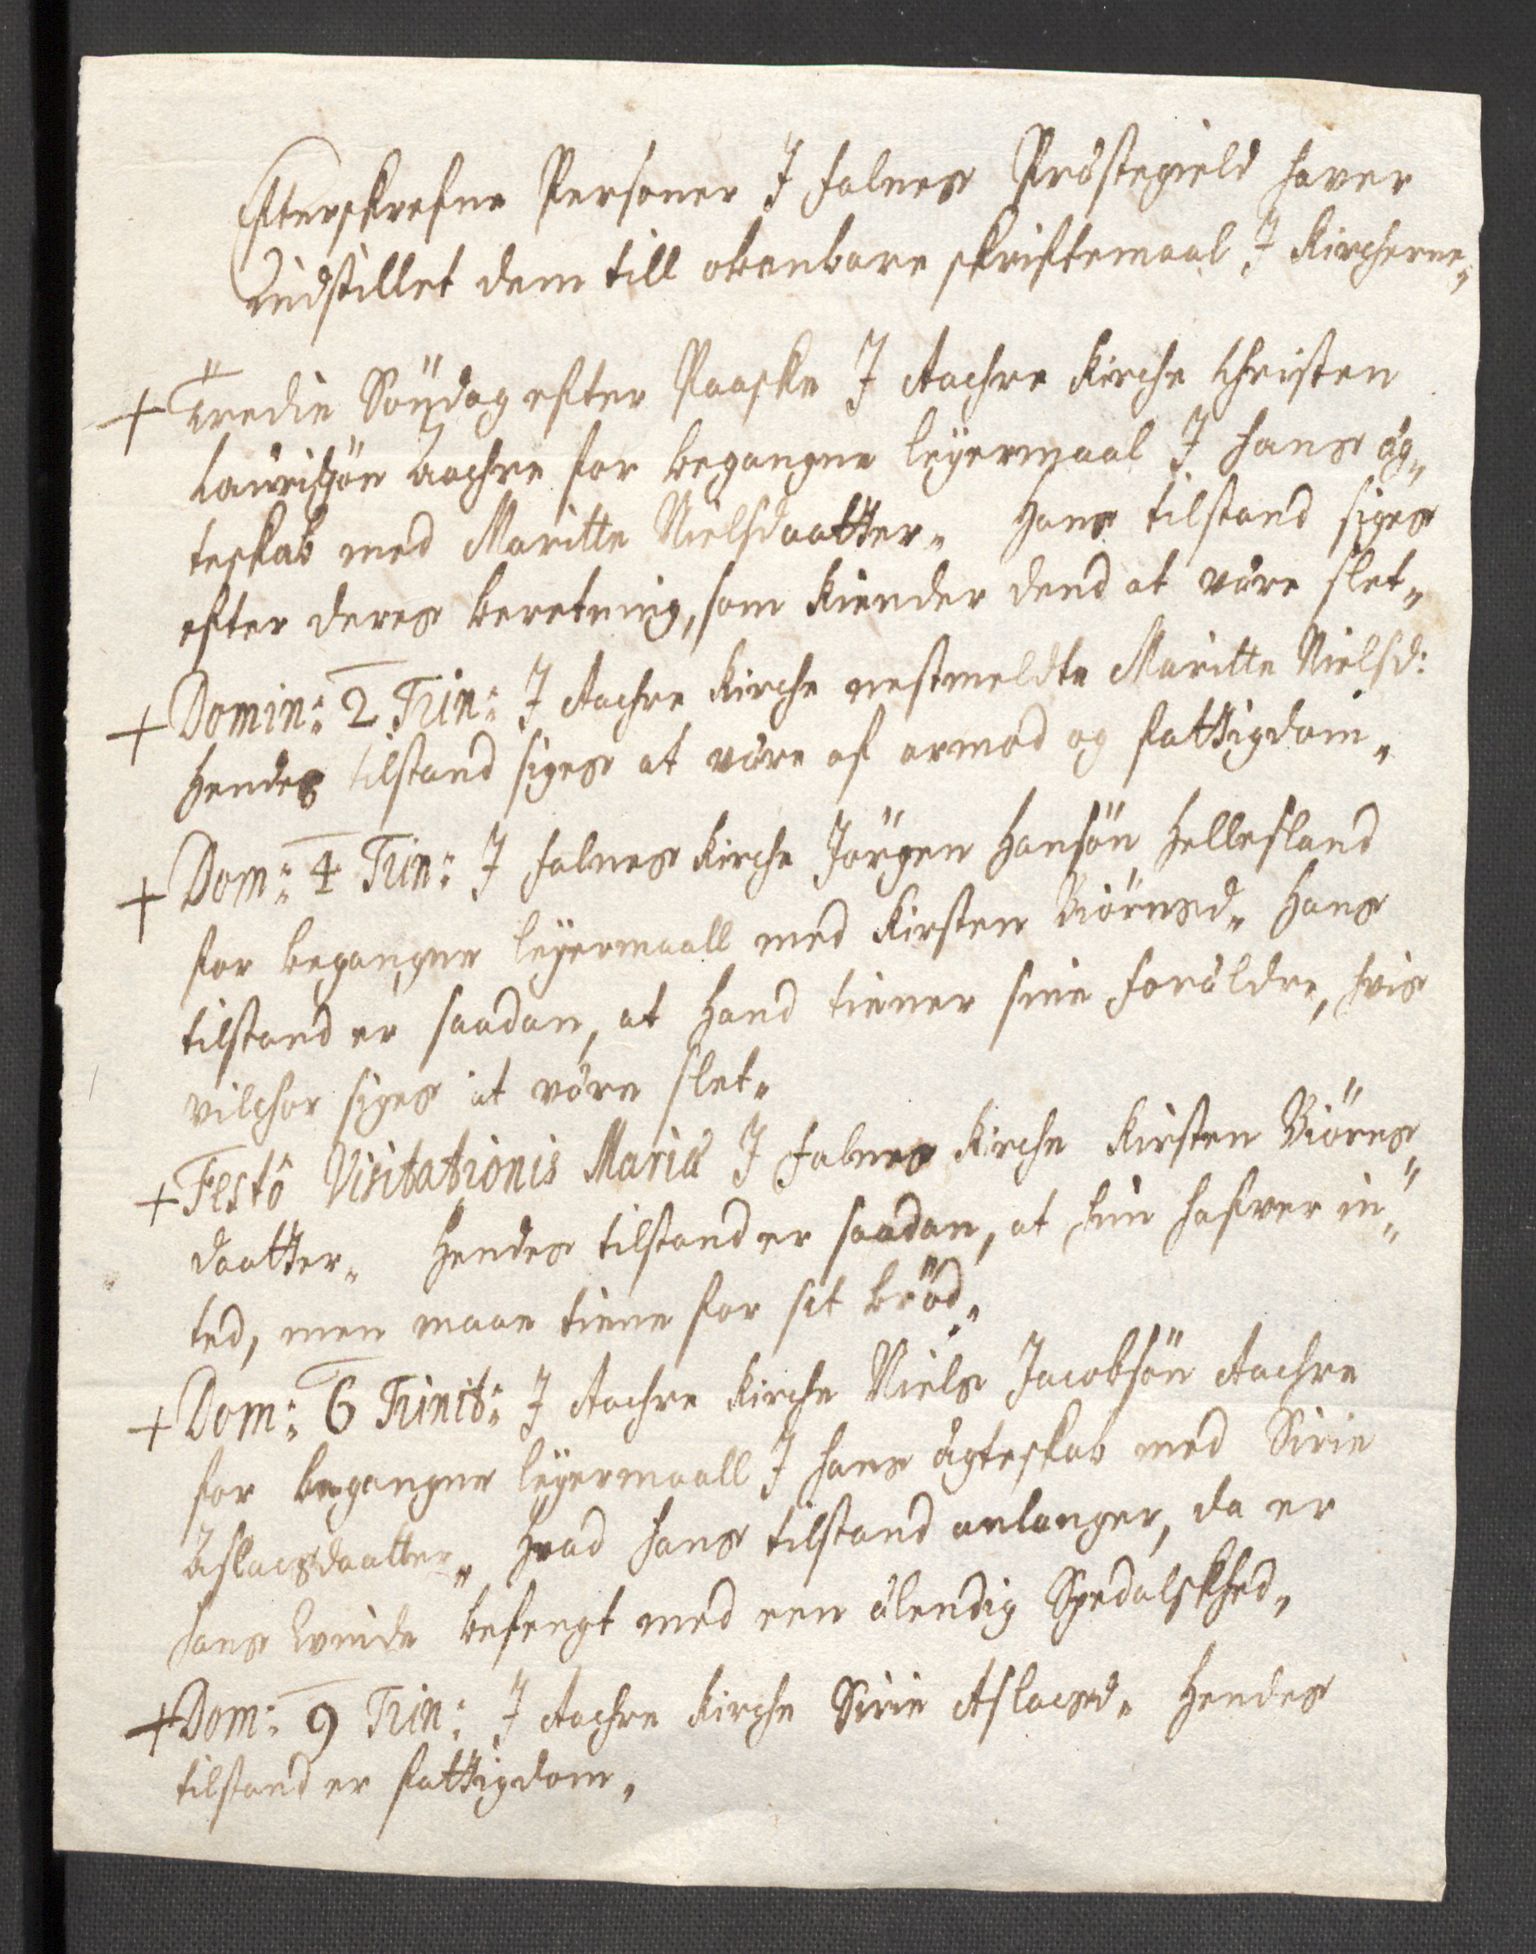 Efterskrefne Personer J falnes Præstegield haver
Uudstillet dem till obenbare skriftemaal J Kircherne„
+ Tredie Söndag efter Paaske J Aachre Kirche Christen
Lauridsön Aachre for begangne leÿermaal J hans æg„
teskab med Maritte Nielsdaatter„ Hans tilstand siges
efter deres beretning, som kiender dend at være slet„
+ Domin: 2 Trin: J Aachre Kirche nestmeldte Maritte Nielsd:
Hendes tilstand siges at være af armod og fattigdom„
+ Dom: 4 Trin: J falnes Kirche Jörgen Hansön Hellesland
for begangne leÿermaall med Kirsten Biörnsd„ Hans
tilstand er saadan, at Hand tiener sine forældre, hvis
vilchor siges at være slet„
+ Festô Visitationis Mariæ J falnes Kirche Kirsten Biörns„
daatter„ Hendes tilstand er saadan, at hun hafver in„
ted, men maae tiene for sit bröd„
+ Dom: 6 Trinit: J Aachre Kirche Niels Jacobsön Aachre
for begangne leÿermaall J hans ægteskab med Sirie
Aslacsdaatter„ Hvad hans tilstand anlanger, da er
hans Qvinde befengt med een ælendig Spedalskhed„
+ Dom: 9 Trin: J Aachre Kirche Sirie Aslacsd„ Hendes
tilstand er fattigdom„